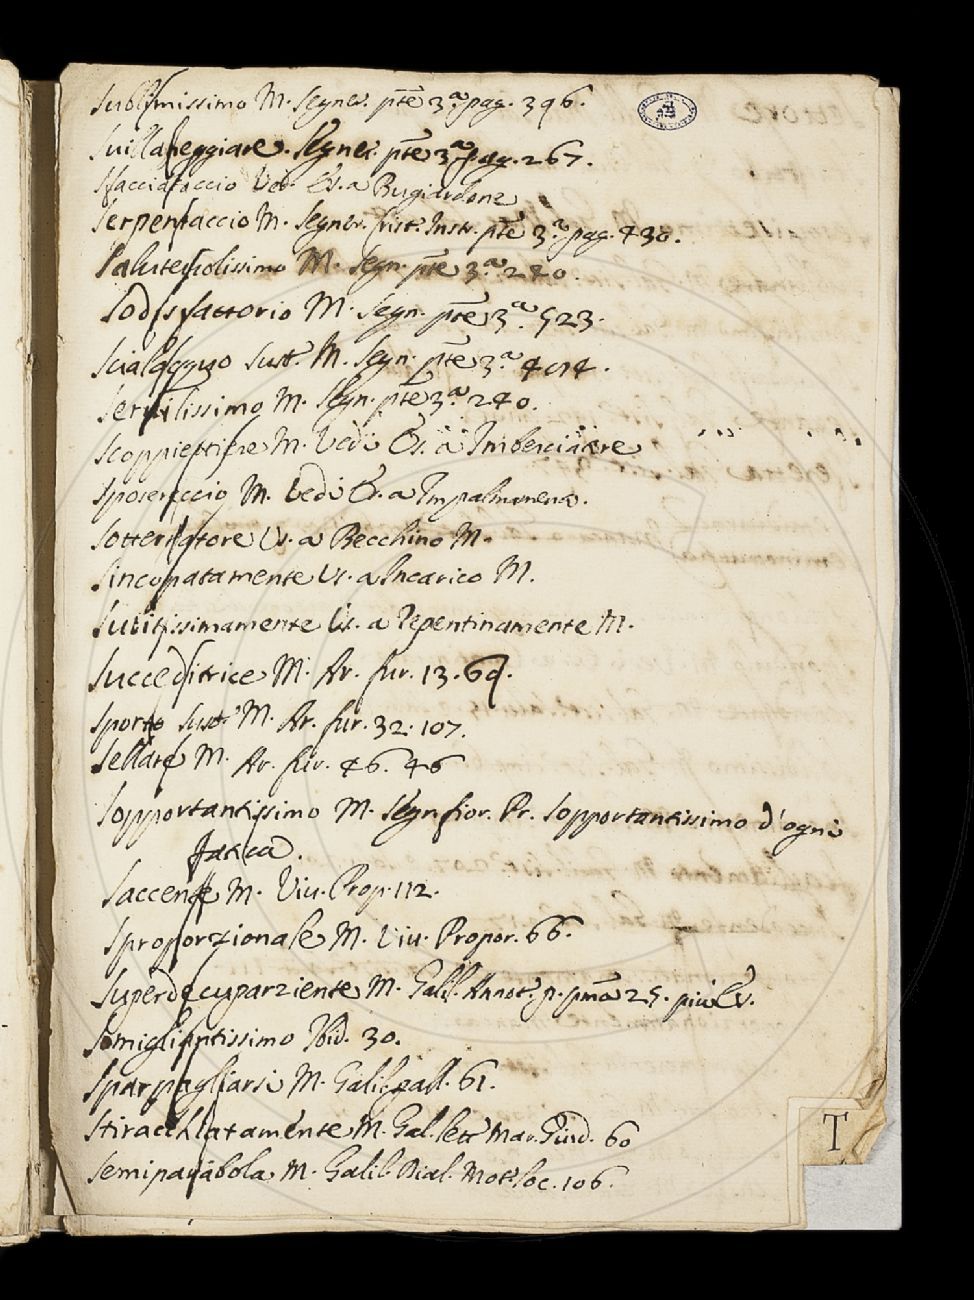 Sublimissimo M. Segner. pte 3.a pag. 396.
Svillaneggiare. Segner. pte 3.a pag. 267.
Sfacciatoccio Ved. Es. a Bugiardone
Serpentaccio M. Segner. Crist. Instr. pte 3.a pag. 430.
Salutevolissimo M. Segn. pte 3.a 240.
Sodisfattorio M. Segn. pte 3.a 523.
Scialacquo Sust. M. Segn. pte 3.a 404.
Servilissimo M. Segn. pte 3.a 240.
M. Vedi Es. a Imberciare
Sposereccio M. Vedi Es. a
Sotterratore Es. a Becchino M.
Sincopatamente Es. a Incarico M.
Subitissimamente Es. a Repentinamente M.
Succeditrice M. Ar. fur. 13. 69.
Sporto Sust. M. Ar. fur. 32. 107.
Sellare M. Ar. fur. 46. 46
Sopportantissimo M. Segn. fior. Pr. Sopportantissimo d'ogni
fatica.
Saccente M. Viv. Prop. 112.
Sproporzionale M. Viv. Propor. 66.
Superdecuparziente M. Galil. Annot. p. pma 25. più Es.
Somigliantissimo Ibid. 30.
Sparpagliarsi M. Galil. gall. 61.
Stiracchiatamente M. Gal. lett. Mar. Guid. 60
Semiparabola M. Galil. Dial. Mot. loc. 106.
T